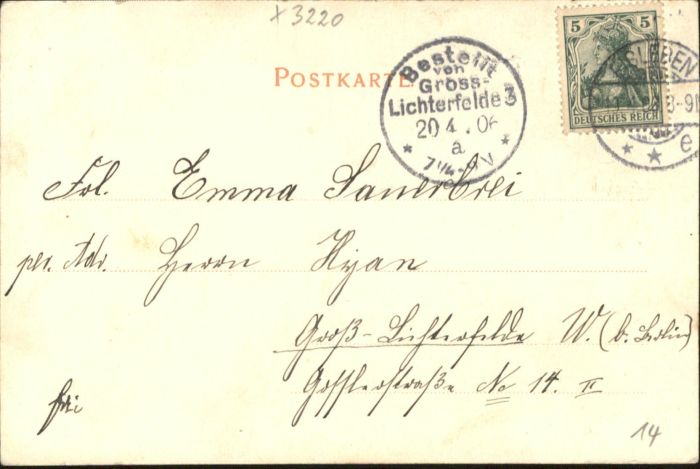 x 3220
POSTKARTE
Bestellt
von
Gross-
Lichterfelde 3
20 4. 06
a
7 1/4-9V
5 5
DEUTSCHES REICH
SLEBEN
8-9
* * e
Frl. Emma Sauerbrei
per. Adr. Herrn Kyan
Groß-Lichterfelde W. (b. Berlin)
Gosslerstraße No 14. II
frei
14